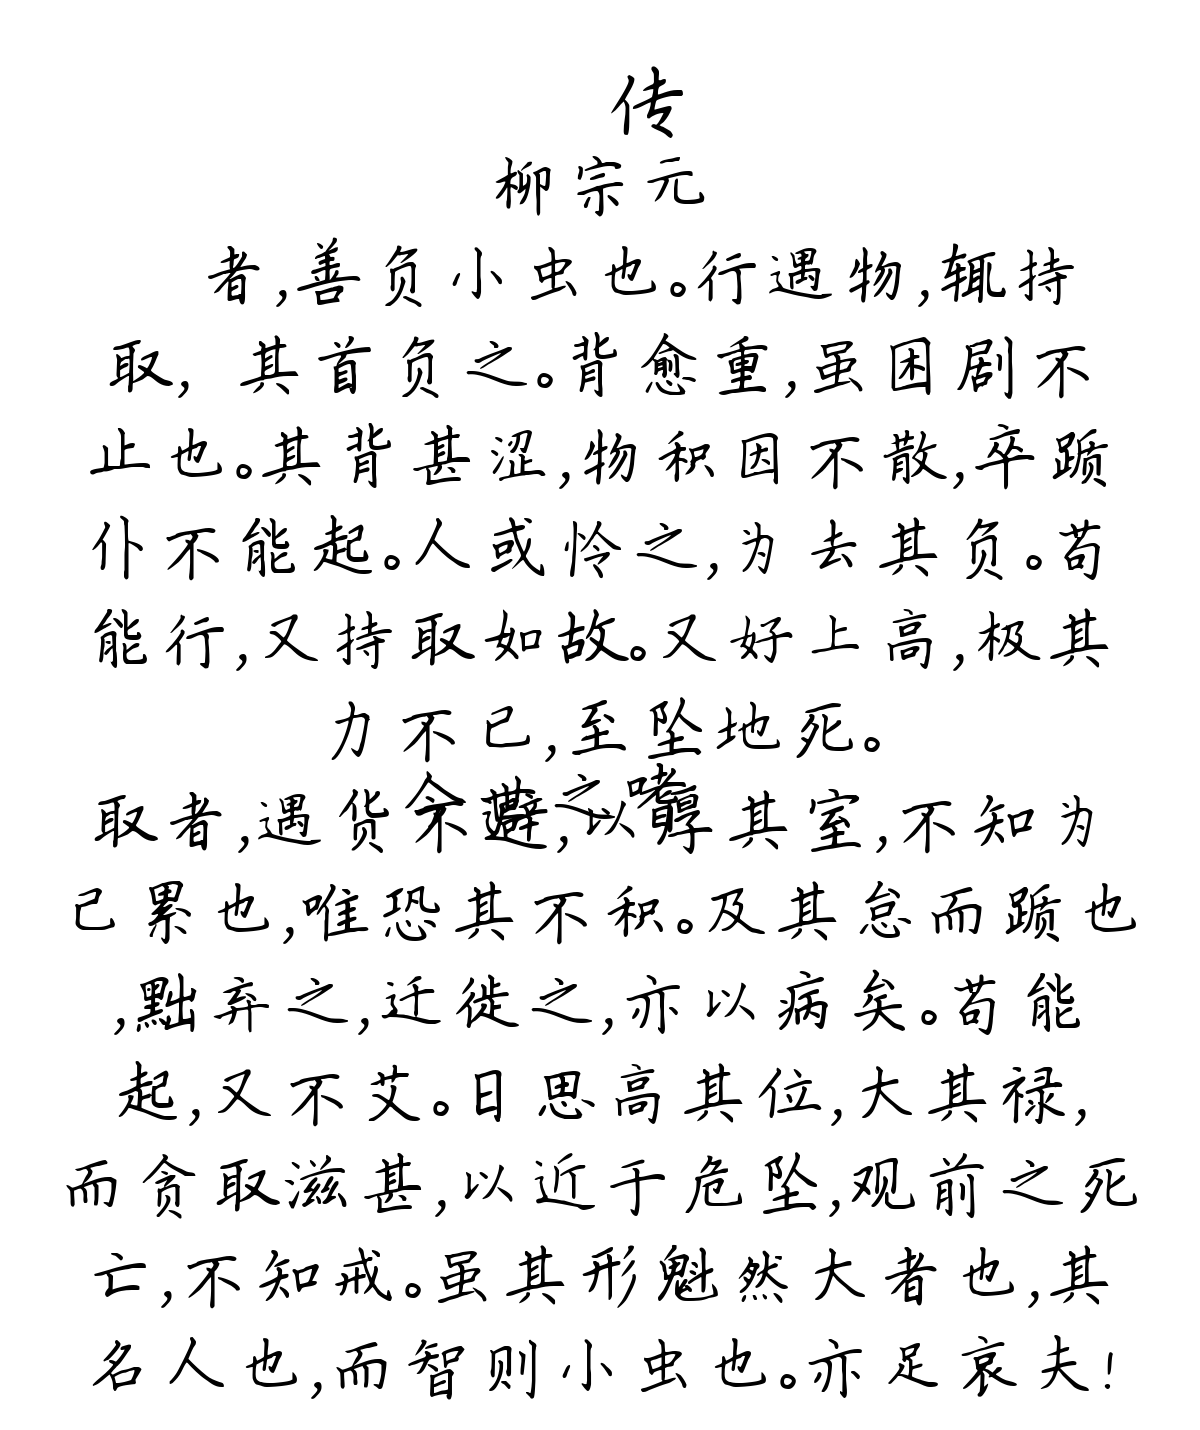 传
柳宗元
者,善负小虫也。行遇物,辄持
取, 其首负之。背愈重,虽困剧不
止也。其背甚涩,物积因不散,卒踬
仆不能起。人或怜之,为去其负。苟
能行,又持取如故。又好上高,极其
力不已,至坠地死。
今世之嗜
取者,遇货不避,以厚其室,不知为
己累也,唯恐其不积。及其怠而踬也
,黜弃之,迁徙之,亦以病矣。苟能
起,又不艾。日思高其位,大其禄,
而贪取滋甚,以近于危坠,观前之死
亡,不知戒。虽其形魁然大者也,其
名人也,而智则小虫也。亦足哀夫!